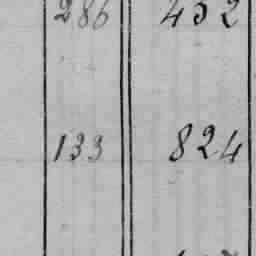 286 452
133 824